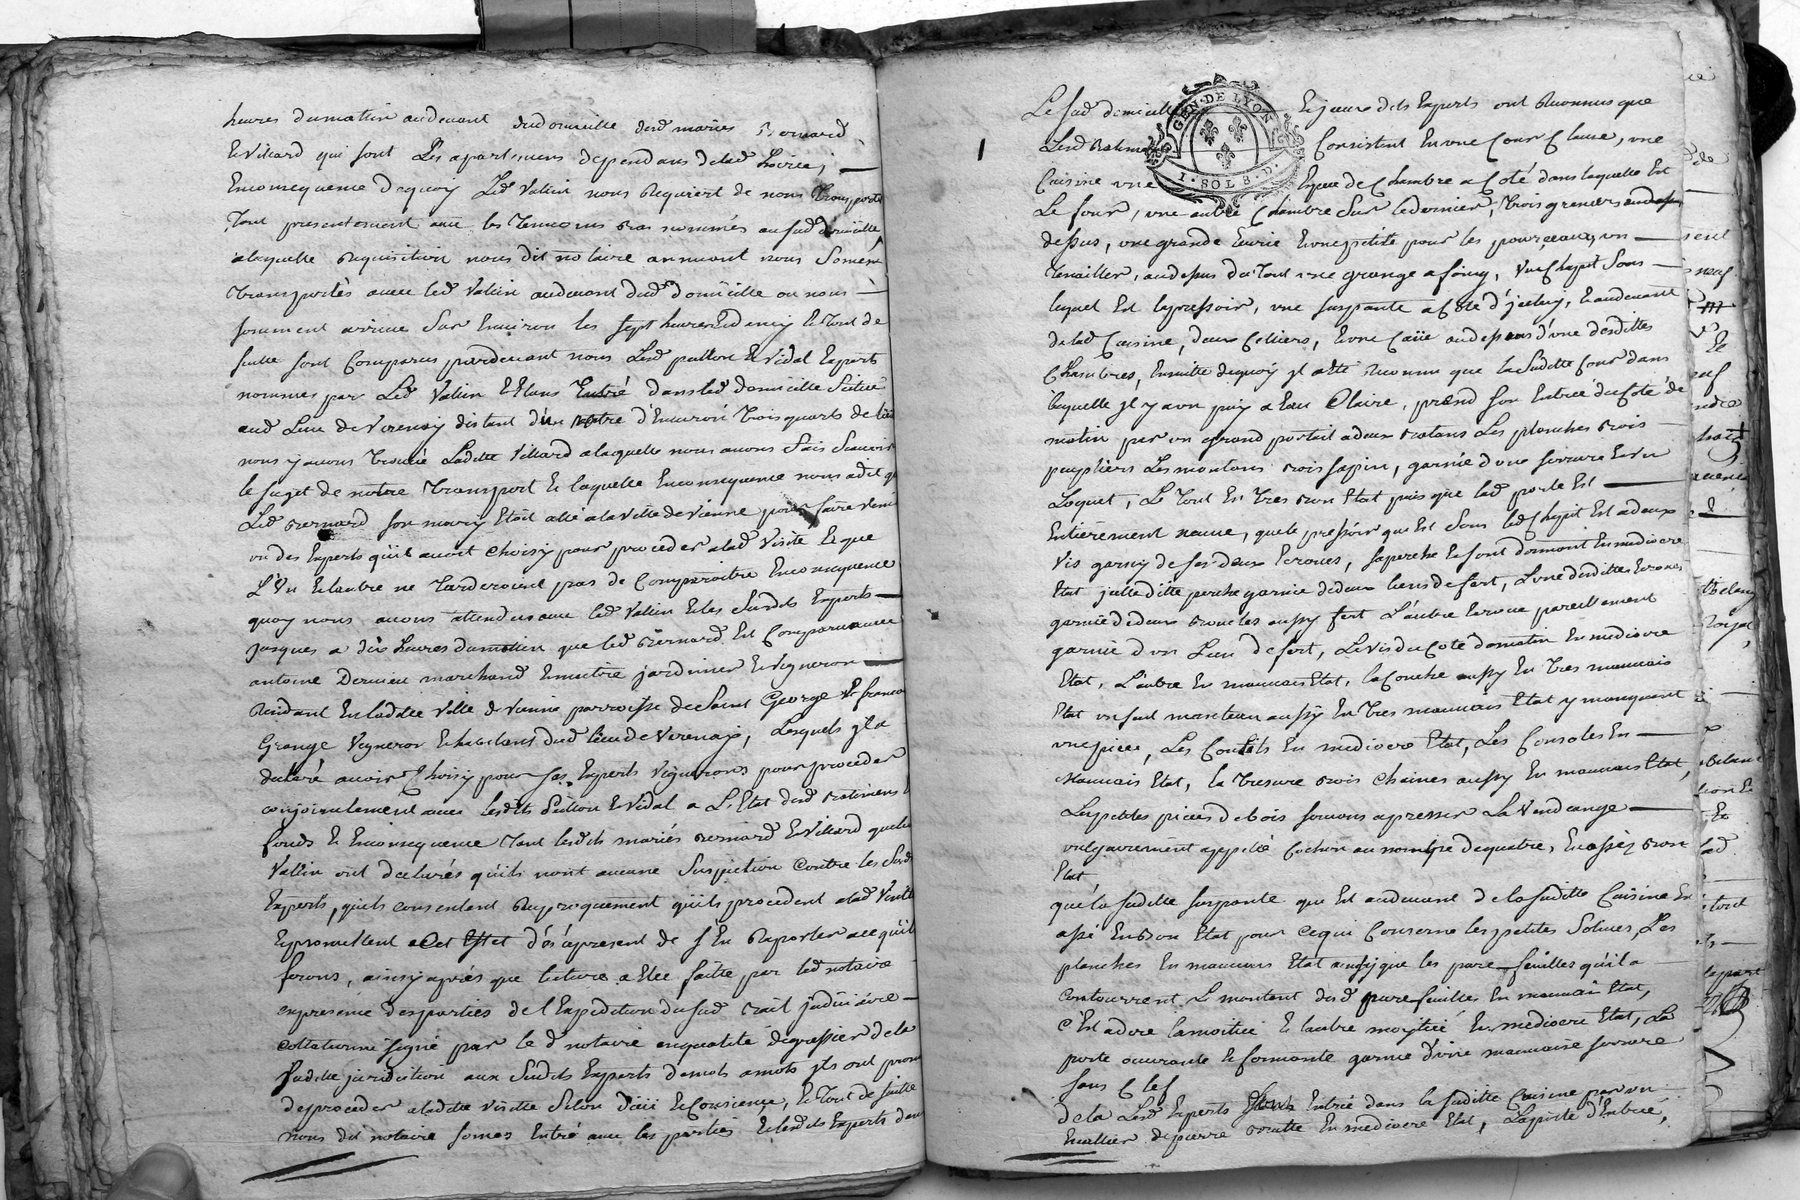 heures du matin audevant dud domicille desd mariés Bernard
& Villard qui font Les apartemens dependans delad hoirie;
Enconsequence dequoy Led Vallin nous Requiert de nous transporter
tout presentement avec les temoins bas nommés ausud domicille,
alaquelle Requisition nous dit notaire annuant nous Somes
transportés avec led Vallin audevant dud domicille ou nous
sommes arrivé Sur Environ les sept heures Edemy Le tout de
suitte sont Comparus pardevant nous Lesd paillon & Vidal Experts
nommés par Led Vallin & Etans Entré dansled domicille Scitué
aud Lieu de Verenay distant d'un notre d'Environ trois quarts de lieu
nous y avons trouvé Laditte Villard alaquelle nous avons Fait Scavoir
le sujet de notre transport & laquelle Enconsequence nous adit que
Led Bernard son mary Etoit allé alaville de Vienne pour faire venir
un des Experts qu'il avoit choisy pour proceder alad Visite & que
L'un & lautre ne tarderoient pas de Comparoitre Enconsequence
quoy nous avons attendu avec led Vallin & les Susdits Experts
jusques a dix heures dumatin que led Bernard Est Comparu avec
antoine Dernieu marchand & maitre jardinier & Vigneron
Residant En laditte Ville de Vienne parroisse de Saint George & francois
Grange Vigneron & habitant dud lieu de Verenay, Lesquels jl a
declaré avoir Choisy pour ses Experts Vignerons pour proceder
conjointement avec lesdits paillon & Vidal a L'Etat desd Batimens &
fonds & Enconsequence tant lesdits mariés Bernard & Villard queled
Vallin ont declarés qu'ils n'ont aucune Suspiction Contre les Susd
Experts, qu'ils consentent Reciproquement qu'ils procedent alad Visite
& promettent aCet Effet d'ors'apresent de s'En Rapporter acequ'ils
feront, ainsy aprés que lecture a Etée faitte par led notaire
enpresence desparties de l'Expedition dusud Bail judiciaire
collationné signé par le d notaire enqualité degreffier de la
susditte juridiction aux Susdits Experts demots amots jls ont promis
deproceder aladitte visitte Selon Dieu & Conscience, & tout de suitte
nous dit notaire somes Entré avec les parties & lesdits Experts dans
Le sud domicille & jceux dits Experts ont Reconnus que
Lesd Batimens Consistent En une Cour Close, une
Cuisine une Espece de Chambre a Coté dans laquelle Est
Le four, une autre Chambre Sur le dernier, trois greniers audessus
dessus, une grande Ecurie & une petitte pour les pourceaux, un
tenailler, audessus du tout une grange afoin, un Chapit Sous
lequel Est le pressoir, une suspante a Coté d'jceluy, & audevant
delad Cuisine, deux Celliers, & une Cave audessous d'une desdittes
Chambres, Ensuitte dequoy jl a Eté Reconnu que la Susditte Cour dans
laquelle jl y a un puy a Eau Claire, prend son Entrée du Coté de
matin par un grand portail adeux Batans Les planches Bois
peupliers Les montans Bois sapin, garnie d'une serrure & un
Loquet, Le tout En tres Bon Etat puis que lad porte Est
Entierement neuve, quele pressoir qui Est Sous led Chapit Est adeux
Vis garny de ses deux Ecrous, saperche & font dormant Enmediocre
Etat jcelle ditte perche garnie dedeux liens de fert, L'une desdittes Ecroues
garnie dedeux Boucles aussy fert L'autre Ecroue pareillement
garnie d'un Lien defert, La vis du Coté dematin En mediocre
Etat, L'autre En mauvais Etat, la Couche aussy En tres mauvais
Etat un seul manteau aussy En tres mauvais Etat y manquant
une piece, Les Consels En mediocre Etat, Les Consoles En
Mauvais Etat, la tresure Bois Chaines aussy En mauvais Etat,
Les petites pieces de bois servans apresser La Vendange
vulgairement appellé Cochon au nombre dequatre, En assés Bon
Etat
que la susditte suspante qui Est audevant dela susditte Cuisine En
assé En Bon Etat pour Cequi Concerne les petites Solives, Les
planches En mauvais Etat ainsy que les pare-feuilles qu'il a
contourrent, Le montant desd parefeuilles En mauvais Etat,
C'est adire lamoitié & lautre moitié En mediocre Etat, La
porte ouvrante & fermante garnie d'une mauvaise serrure
sans Clef
dela Lesd Experts Etant Entrés dans la susditte Cuisine par un
Escallier depierre Brutte En mediocre Etat, La porte d'Entrée,
GEN·DE LYON
I·SOL 8·D·